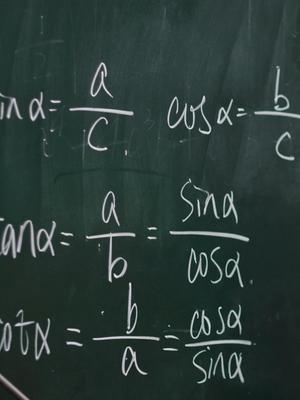 in α = a/c. cos α = b/c
tan α = a/b = sin α/cos α.
cot α = b/a = cos α/sin α